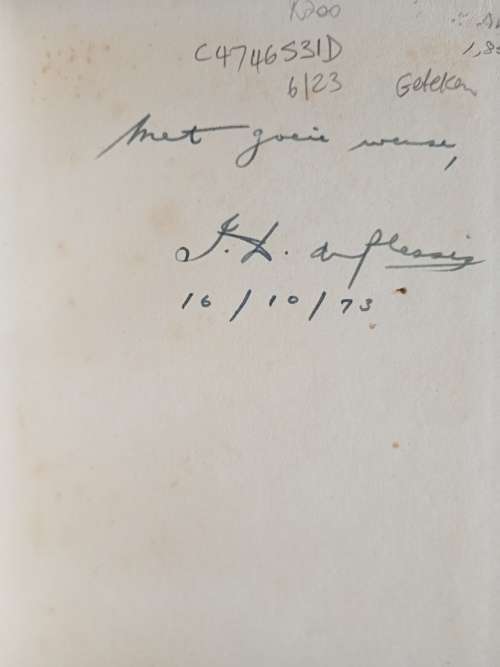 R200
C4746S31D
6/23 Geteken
Met goeie wense,
J. L. du Plessis
16/10/73